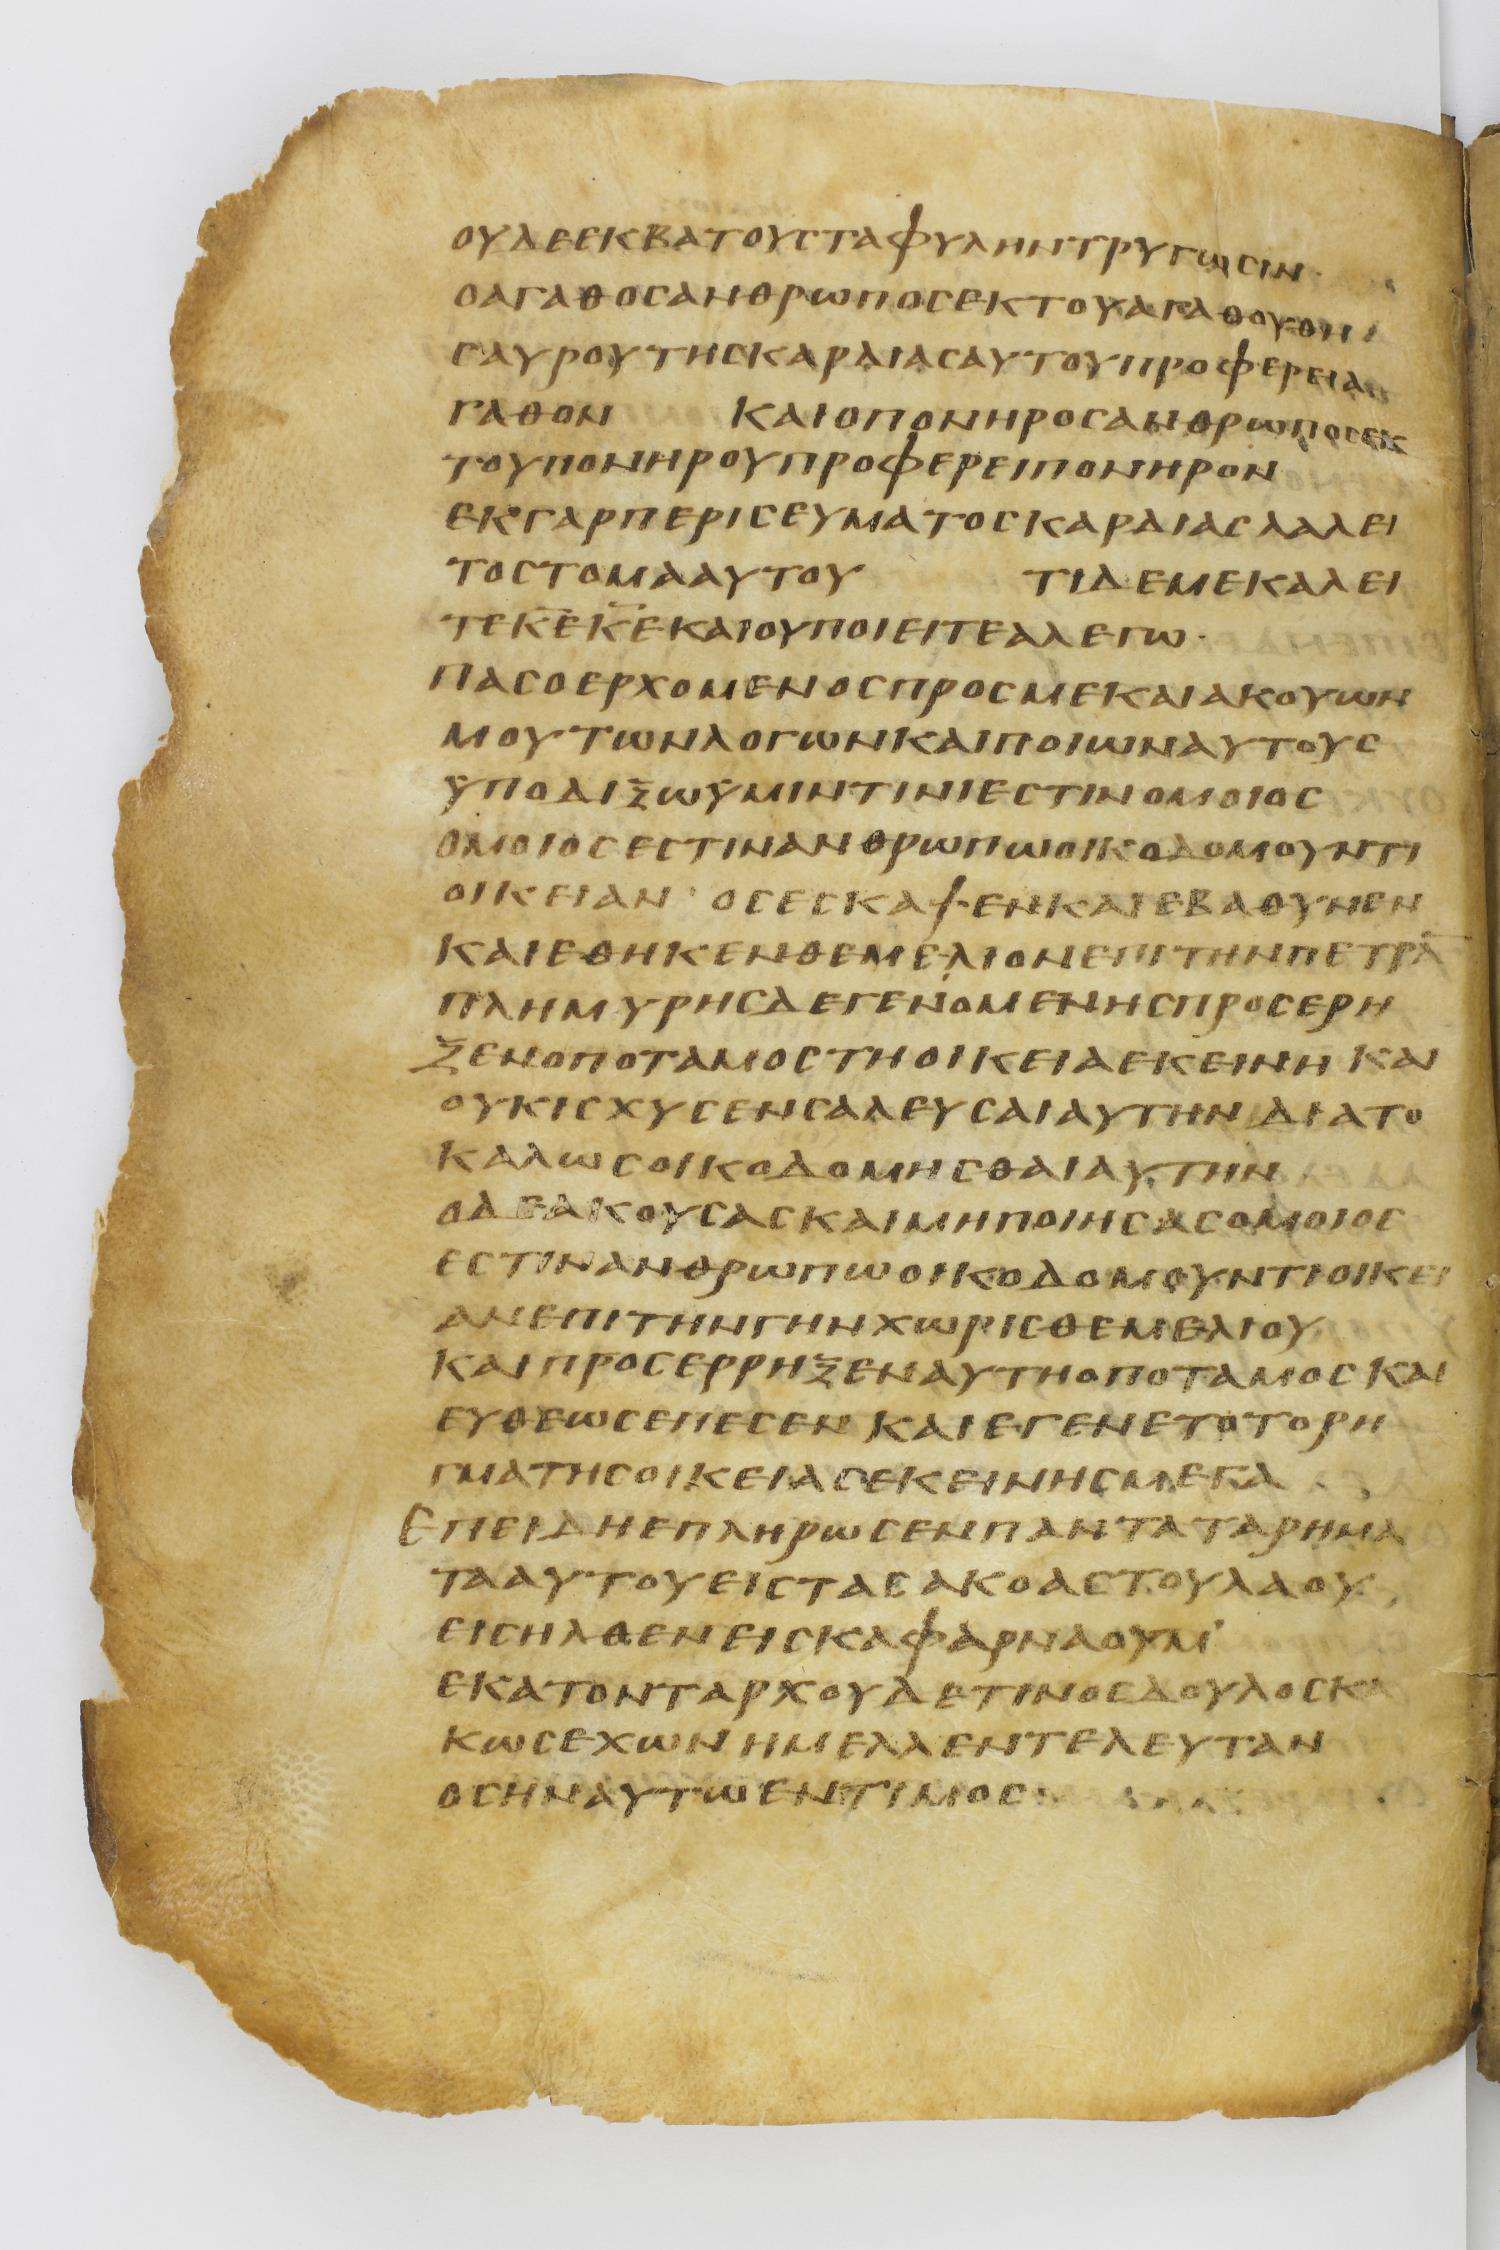 ΟΥΔΕΕΚΒΑΤΟΥϹΤΑΦΥΛΗΝΤΡΥΓΩϹΙΝ·
ΟΑΓΑΘΟϹΑΝΘΡΩΠΟϹΕΚΤΟΥΑΓΑΘΟΥΘΗ
ϹΑΥΡΟΥΤΗϹΚΑΡΔΙΑϹΑΥΤΟΥΠΡΟΦΕΡΕΙΑ
ΓΑΘΟΝ ΚΑΙΟΠΟΝΗΡΟϹΑΝΘΡΩΠΟϹΕΚ
ΤΟΥΠΟΝΗΡΟΥΠΡΟΦΕΡΕΙΠΟΝΗΡΟΝ
ΕΚΓΑΡΠΕΡΙϹΕΥΜΑΤΟϹΚΑΡΔΙΑϹΛΑΛΕΙ
ΤΟϹΤΟΜΑΑΥΤΟΥ ΤΙΔΕΜΕΚΑΛΕΙ
ΤΕΚ̅Ε̅Κ̅Ε̅ΚΑΙΟΥΠΟΙΕΙΤΕΑΛΕΓΩ·
ΠΑϹΟΕΡΧΟΜΕΝΟϹΠΡΟϹΜΕΚΑΙΑΚΟΥΩΝ
ΜΟΥΤΩΝΛΟΓΩΝΚΑΙΠΟΙΩΝΑΥΤΟΥϹ
ΥΠΟΔΙΞΩΥΜΙΝΤΙΝΙΕϹΤΙΝΟΜΟΙΟϹ
ΟΜΟΙΟϹΕϹΤΙΝΑΝΘΡΩΠΩΟΙΚΟΔΟΜΟΥΝΤΙ
ΟΙΚΕΙΑΝ· ΟϹΕϹΚΑΨΕΝΚΑΙΕΒΑΘΥΝΕΝ
ΚΑΙΕΘΗΚΕΝΘΕΜΕΛΙΟΝΕΠΙΤΗΝΠΕΤΡΑ̅
ΠΛΗΜΥΡΗϹΔΕΓΕΝΟΜΕΝΗϹΠΡΟϹΕΡΗ
ΞΕΝΟΠΟΤΑΜΟϹΤΗΟΙΚΕΙΑΕΚΕΙΝΗ ΚΑΙ
ΟΥΚΙϹΧΥϹΕΝϹΑΛΕΥϹΑΙΑΥΤΗΝΔΙΑΤΟ
ΚΑΛΩϹΟΙΚΟΔΟΜΗϹΘΑΙΑΥΤΗΝ
ΟΔΕΑΚΟΥϹΑϹΚΑΙΜΗΠΟΙΗϹΑϹΟΜΟΙΟϹ
ΕϹΤΙΝΑΝΘΡΩΠΩΟΙΚΟΔΟΜΟΥΝΤΙΟΙΚΕΙ
ΑΝΕΠΙΤΗΝΓΗΝΧΩΡΙϹΘΕΜΕΛΙΟΥ
ΚΑΙΠΡΟϹΕΡΡΗΞΕΝΑΥΤΗΟΠΟΤΑΜΟϹΚΑΙ
ΕΥΘΕΩϹΕΠΕϹΕΝ ΚΑΙΕΓΕΝΕΤΟΤΟΡΗ
ΓΜΑΤΗϹΟΙΚΕΙΑϹΕΚΕΙΝΗϹΜΕΓΑ
ΕΠΕΙΔΗΕΠΛΗΡΩϹΕΝΠΑΝΤΑΤΑΡΗΜΑ
ΤΑΑΥΤΟΥΕΙϹΤΑϹΑΚΟΑϹΤΟΥΛΑΟΥ
ΕΙϹΗΛΘΕΝΕΙϹΚΑΦΑΡΝΑΟΥΜ
ΕΚΑΤΟΝΤΑΡΧΟΥΔΕΤΙΝΟϹΔΟΥΛΟϹΚΑ
ΚΩϹΕΧΩΝΗΜΕΛΛΕΝΤΕΛΕΥΤΑΝ
ΟϹΗΝΑΥΤΩΕΝΤΙΜΟϹ